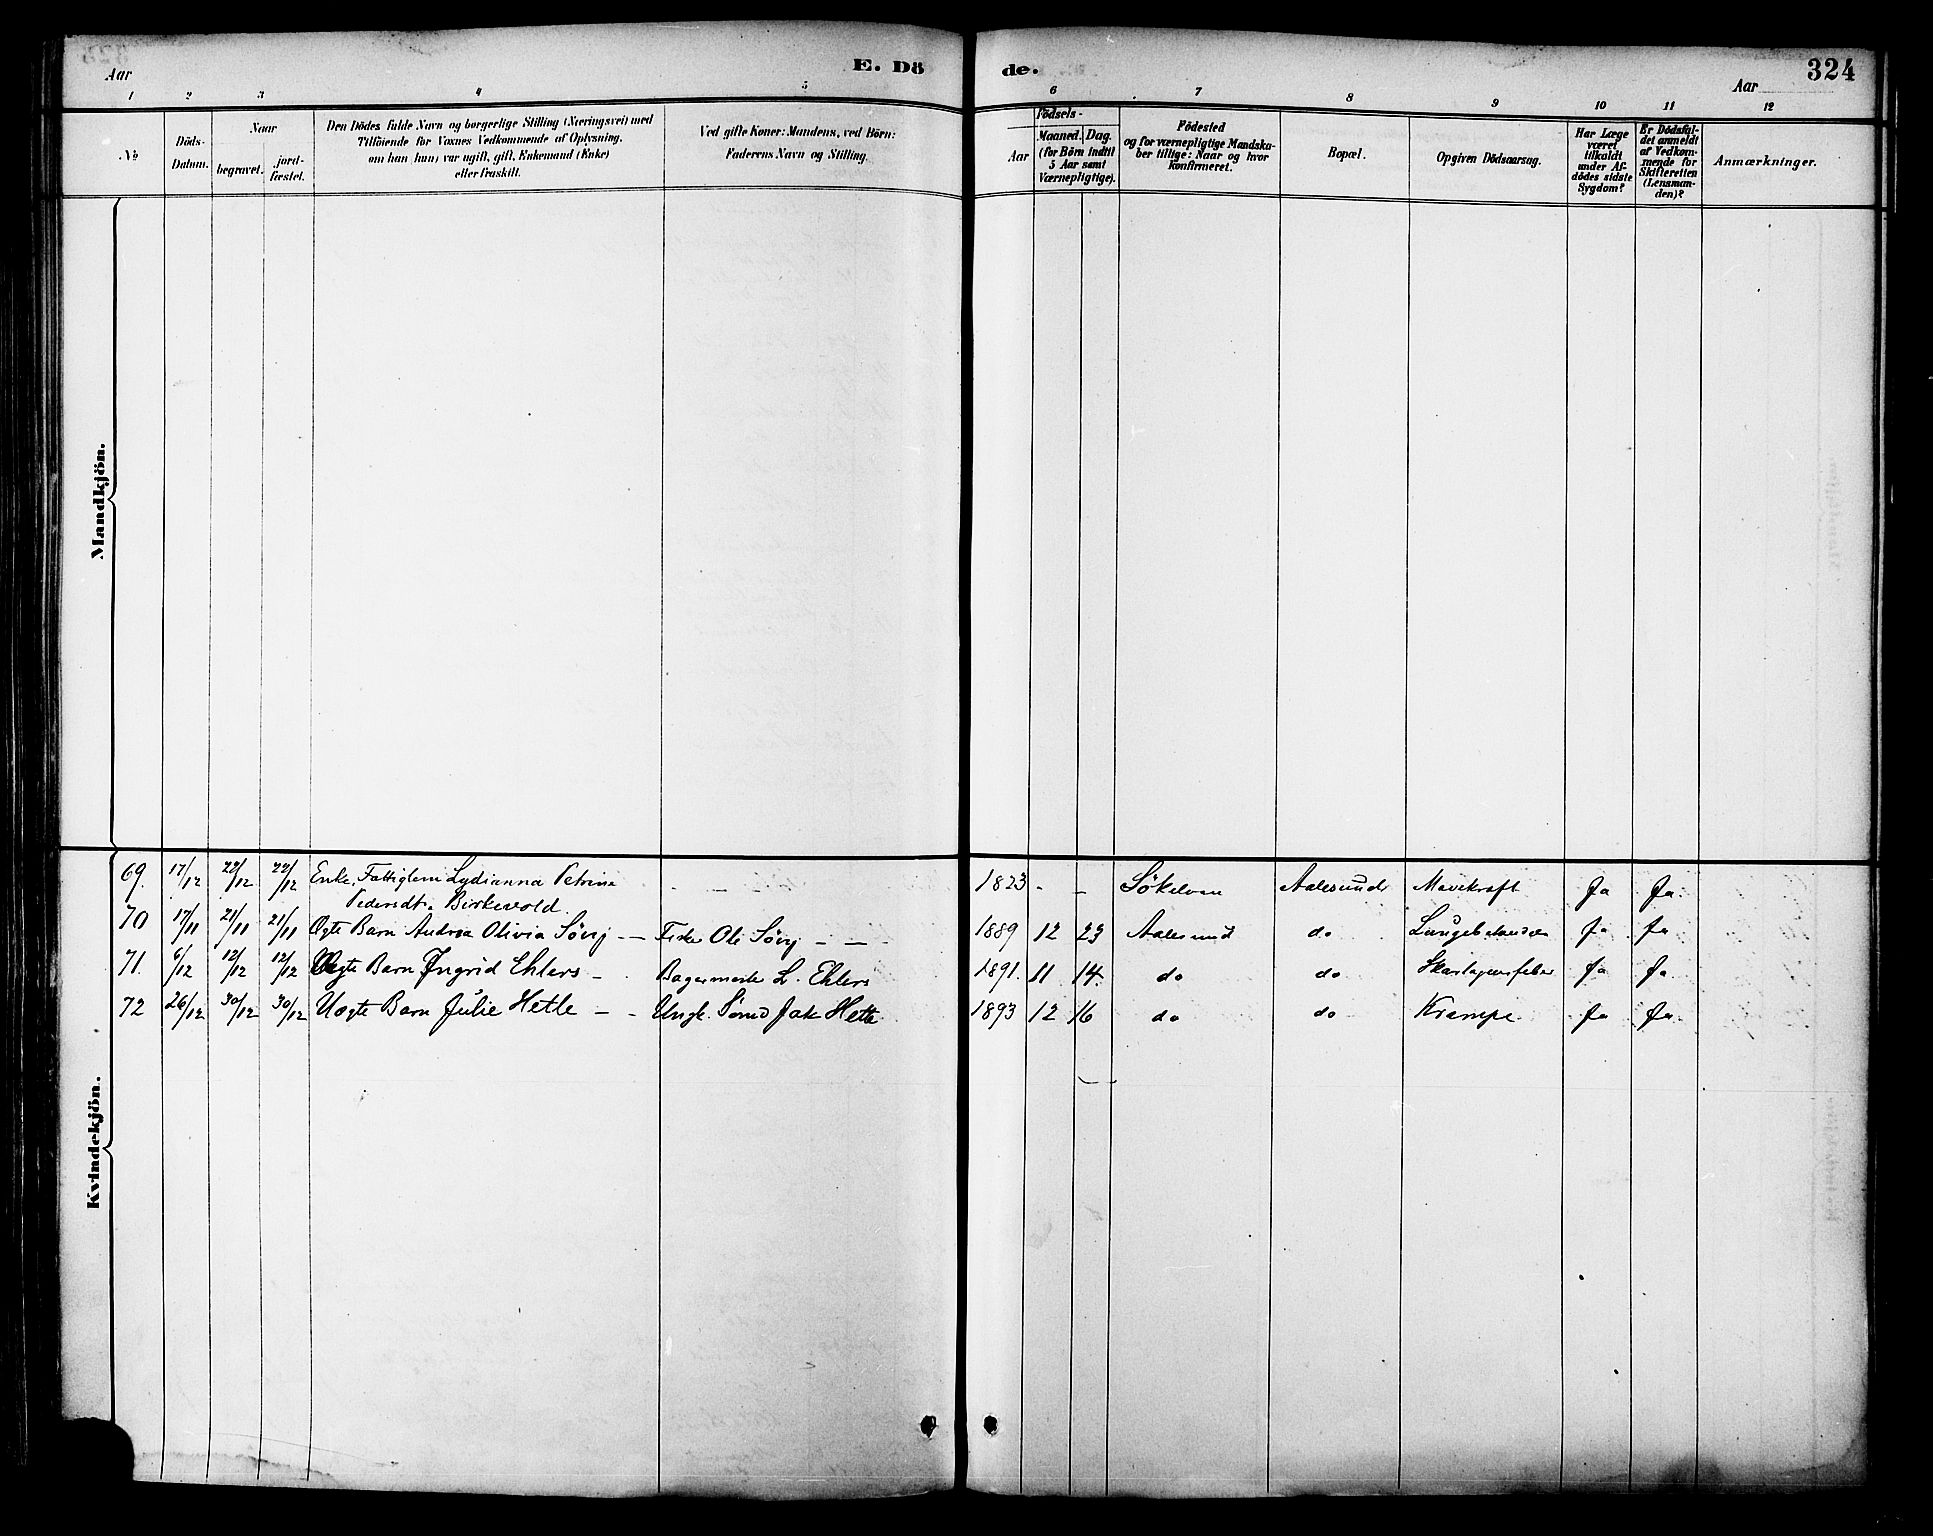 Aar
E. Dö
de.
Aar
324
1 2 3 4 5 6 7 8 9 10 11 12
No
Döds-
Datum.
Naar
begravet.
jord-
fæstet.
Den Dödes fulde Navn og borgerlige Stilling (Næringsvei) med
Tilföiende for Voxnes Vedkommende af Oplysning,
om han (hun) var ugift, gift, Enkemand (Enke)
eller fraskilt.
Ved gifte Koner: Mandens, ved Börn:
Faderens Navn og Stilling.
Födsels-
Aar
Maaned. Dag.
(for Börn indtil
5 Aar samt
Værnepligtige).
Födested
og for værnepligtige Mandska-
ber tillige: Naar og hvor
konfirmeret.
Bopæl.
Opgiven Dödsaarsag.
Har Læge
været
tilkaldt
under Af-
dödes sidste
Sygdom?
Er Dödsfal-
det anmeldt
af Vedkom-
mende for
Skifteretten
(Lensman-
den)?
Anmærkninger.
Mandkjön.
Kvindekjön.
69. 17/12 22/12 22/12 Enke, Fattiglem Lydianna Petrine - - 1823 - - Sökelven Aalesund Mavekræft Ja Ja
Pedersdt. Birkevold
70 17/11 21/11 21/11 Ægte Barn Andrea Olivia Søvj - - Fisker Ole Søvj - - 1889 12 23 Aalesund do Ja Ja
71. 6/12 12/12 12/12 Ægte Barn Ingrid Ehlers - Bagermester L. Ehlers 1891. 11 14 do do Skarlagensfeber Ja Ja
72 26/12 30/12 30/12 Uægte Barn Julie Hetle - - Ungk. Sømd Jak Hetle 1893 12 16 do do Krampe Ja Ja